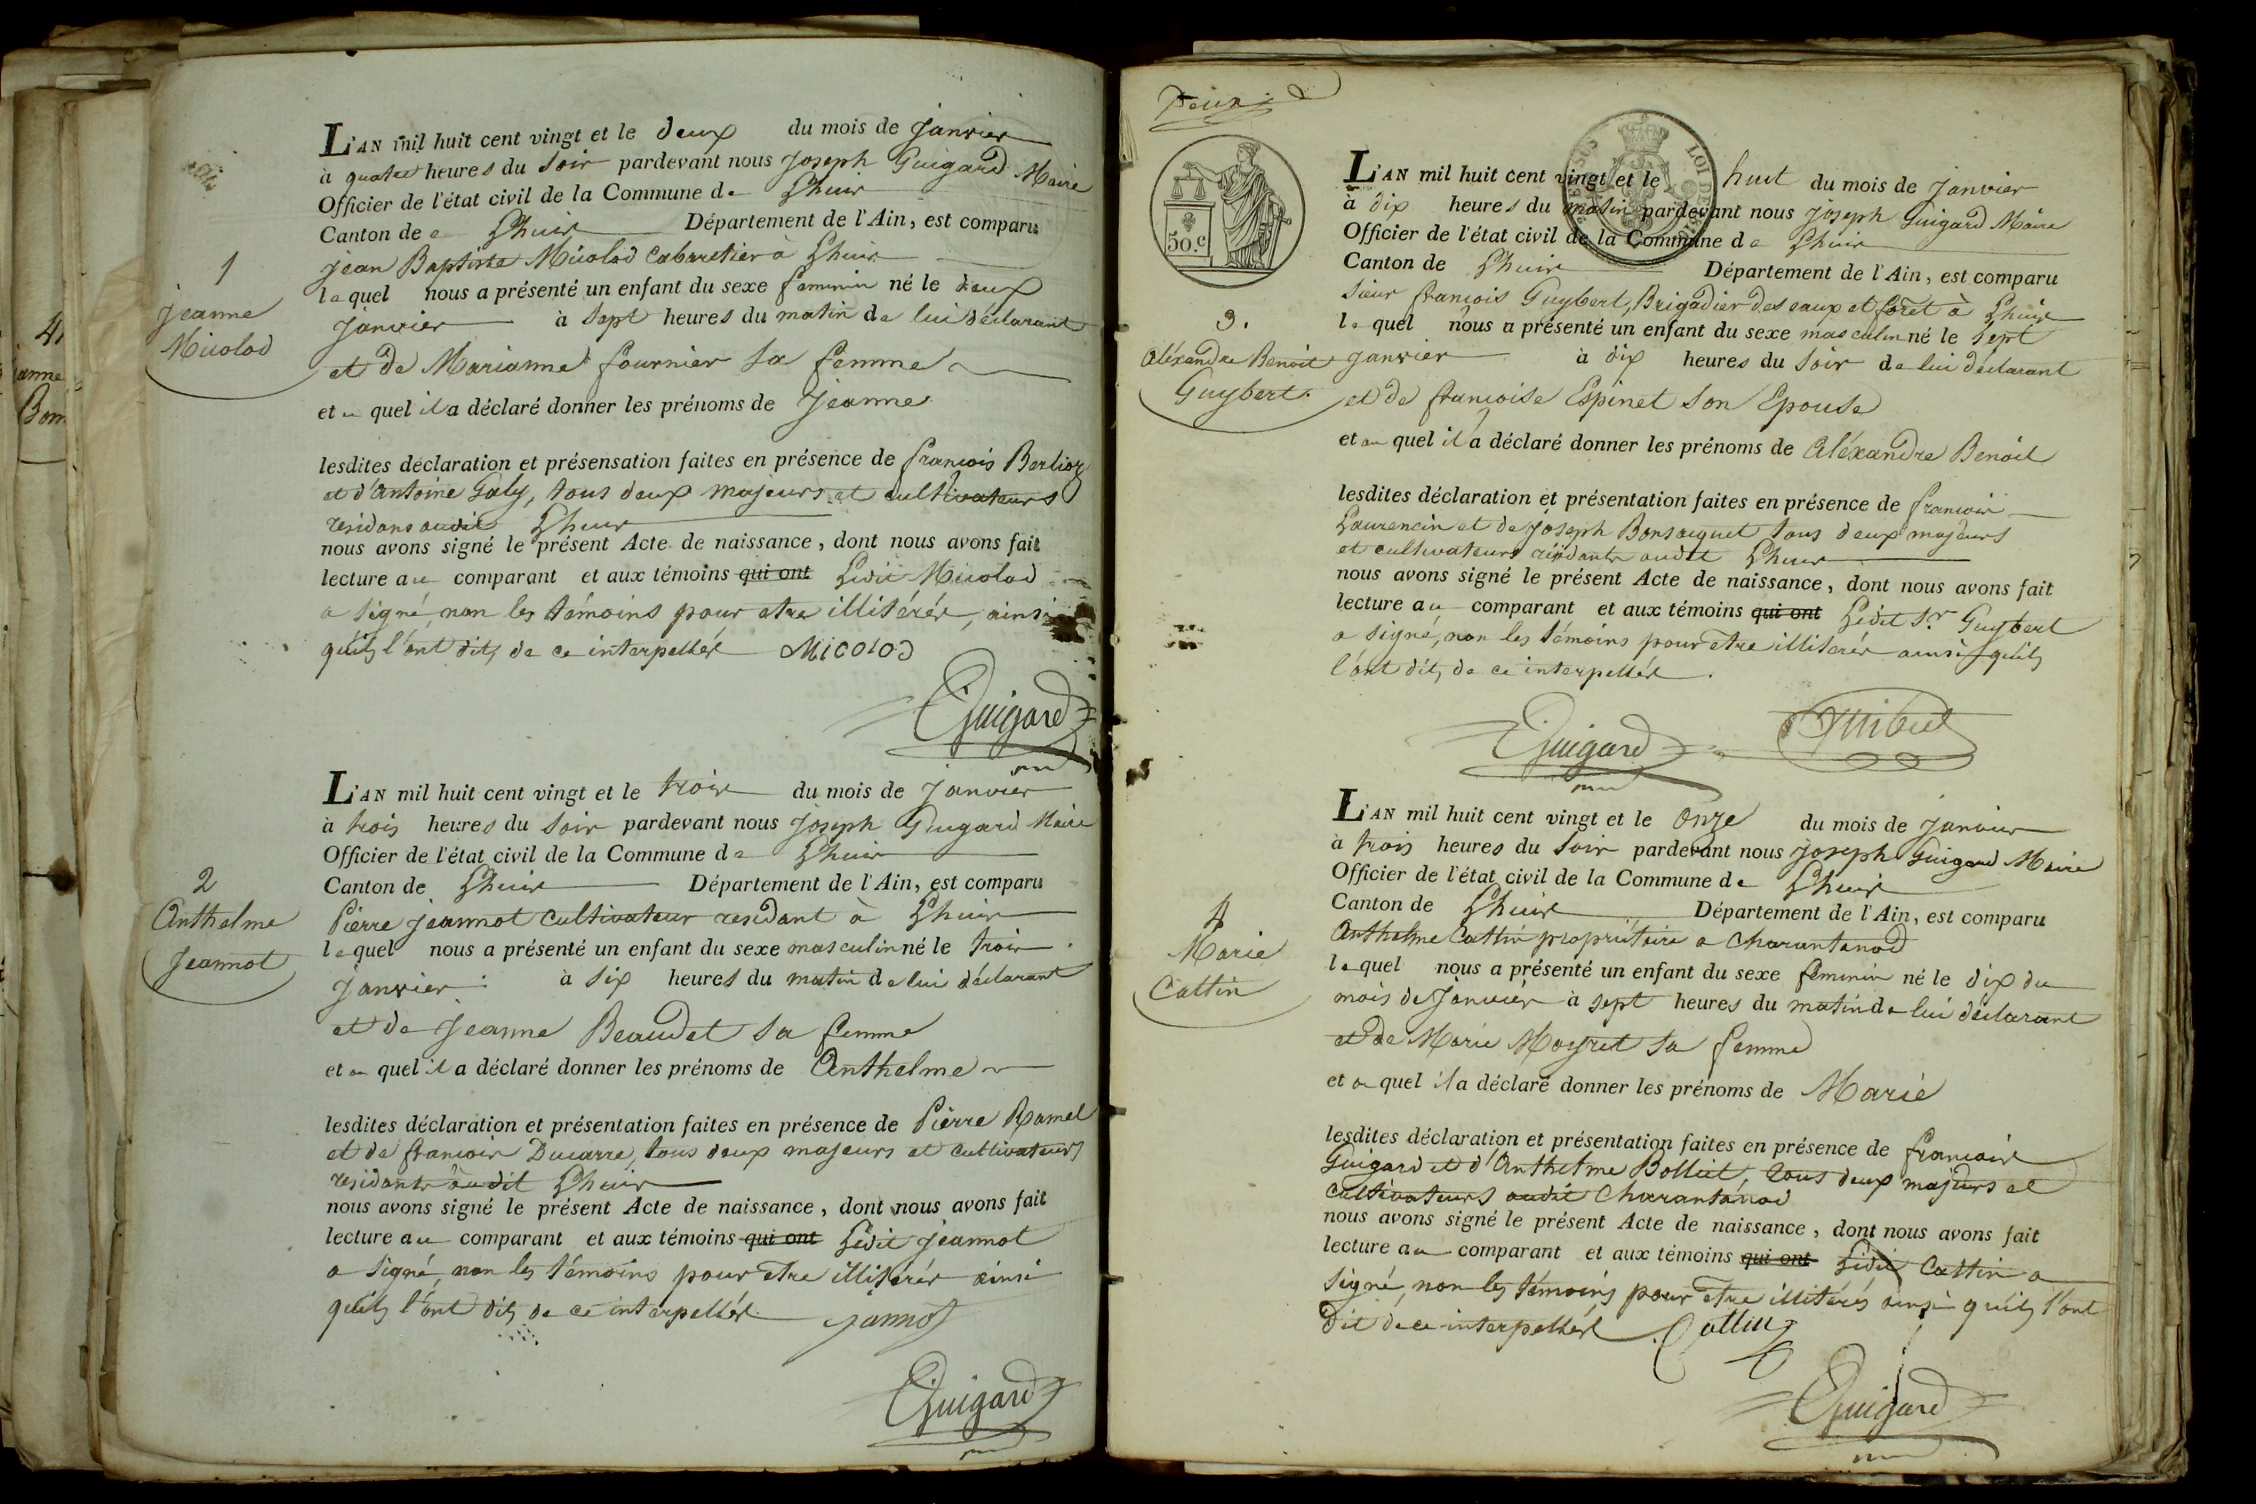 L'AN mil huit cent vingt et le deux du mois de janvier
à quatre heures du soir pardevant nous joseph Guigard Maire
Officier de l'état civil de la Commune de Lhuis
Canton de Lhuis Département de l'Ain, est comparu
jean Baptiste Micolod Cabaretier à Lhuis
lequel nous a présenté un enfant du sexe feminin né le deux
janvier à sept heures du matin de lui déclarant
et de Marianne fournier sa femme
et auquel il a déclaré donner les prénoms de jeanne
lesdites déclaration et présensation faites en présence de françois Berlioz
et d'antoine Galy, tous deux majeurs et cultivateurs
residans audit Lhuis
nous avons signé le présent Acte de naissance, dont nous avons fait
lecture au comparant et aux témoins qui ont Ledit Micolod
a signé, non les témoins pour etre illitérés, ainsi
qu'ils l'ont dit, de ce interpellés MICOLOD
Guigard
1
jeanne
Micolod
L'AN mil huit cent vingt et le trois du mois de janvier
à trois heures du soir pardevant nous joseph Guigard Maire
Officier de l'état civil de la Commune de Lhuis
Canton de Lhuis Département de l'Ain, est comparu
Pierre jeannot cultivateur residant à Lhuis
lequel nous a présenté un enfant du sexe masculin né le trois
janvier à six heures du matin de lui déclarant
et de jeanne Beaudet sa femme
et auquel il a déclaré donner les prénoms de Anthelme
lesdites déclaration et présentation faites en présence de Pierre Ramel
et de françois Ducarre, tous deux majeurs et cultivateurs
residants audit Lhuis
nous avons signé le présent Acte de naissance, dont nous avons fait
lecture au comparant et aux témoins qui ont Ledit jeannot
a signé, non les témoins pour etre illitérés ainsi
qu'ils l'ont dit, de ce interpellés jannot
Guigard
2
Anthelme
Jeannot
Deux
50.c
L'AN mil huit cent vingt et le huit du mois de janvier
à dix heures du matin pardevant nous joseph Guigard Maire
Officier de l'état civil de la Commune de Lhuis
Canton de Lhuis Département de l'Ain, est comparu
sieur françois Guybert, Brigadier des eaux et forêt à Lhuis
lequel nous a présenté un enfant du sexe masculin né le sept
janvier à dix heures du soir de lui déclarant
et de françoise Espinet son Epouse
et auquel il a déclaré donner les prénoms de Aléxandre Benoit
lesdites déclaration et présentation faites en présence de françois
Laurencin et de joseph Bonsacquet tous deux majeurs
et cultivateurs résidants audit Lhuis
nous avons signé le présent Acte de naissance, dont nous avons fait
lecture au comparant et aux témoins qui ont Ledit Sr Guybert
a signé, non les témoins pour etre illitérés ainsi qu'ils
l'ont dit, de ce interpellés.
Guigard Guibert
3.
Aléxandre Benoit
Guybert.
L'AN mil huit cent vingt et le Onze du mois de janvier
à trois heures du soir pardevant nous joseph Guigard Maire
Officier de l'état civil de la Commune de Lhuis
Canton de Lhuis Département de l'Ain, est comparu
Anthelme Cattin propriétaire a Charantanod
lequel nous a présenté un enfant du sexe feminin né le dix du
mois de Janvier à sept heures du matin de lui déclarant
et de Marie Moyret sa femme
et auquel il a déclaré donner les prénoms de Marie
lesdites déclaration et présentation faites en présence de françois
Guigard et d'Anthelme Bolliet, tous deux majeurs et
cultivateurs audit Charantanod
nous avons signé le présent Acte de naissance, dont nous avons fait
lecture au comparant et aux témoins qui ont Ledit Cattin a
signé, non les témoins pour etre illitérés ainsi qu'ils l'ont
dit de ce interpellés Cattin
Guigard
4
Marie
Cattin